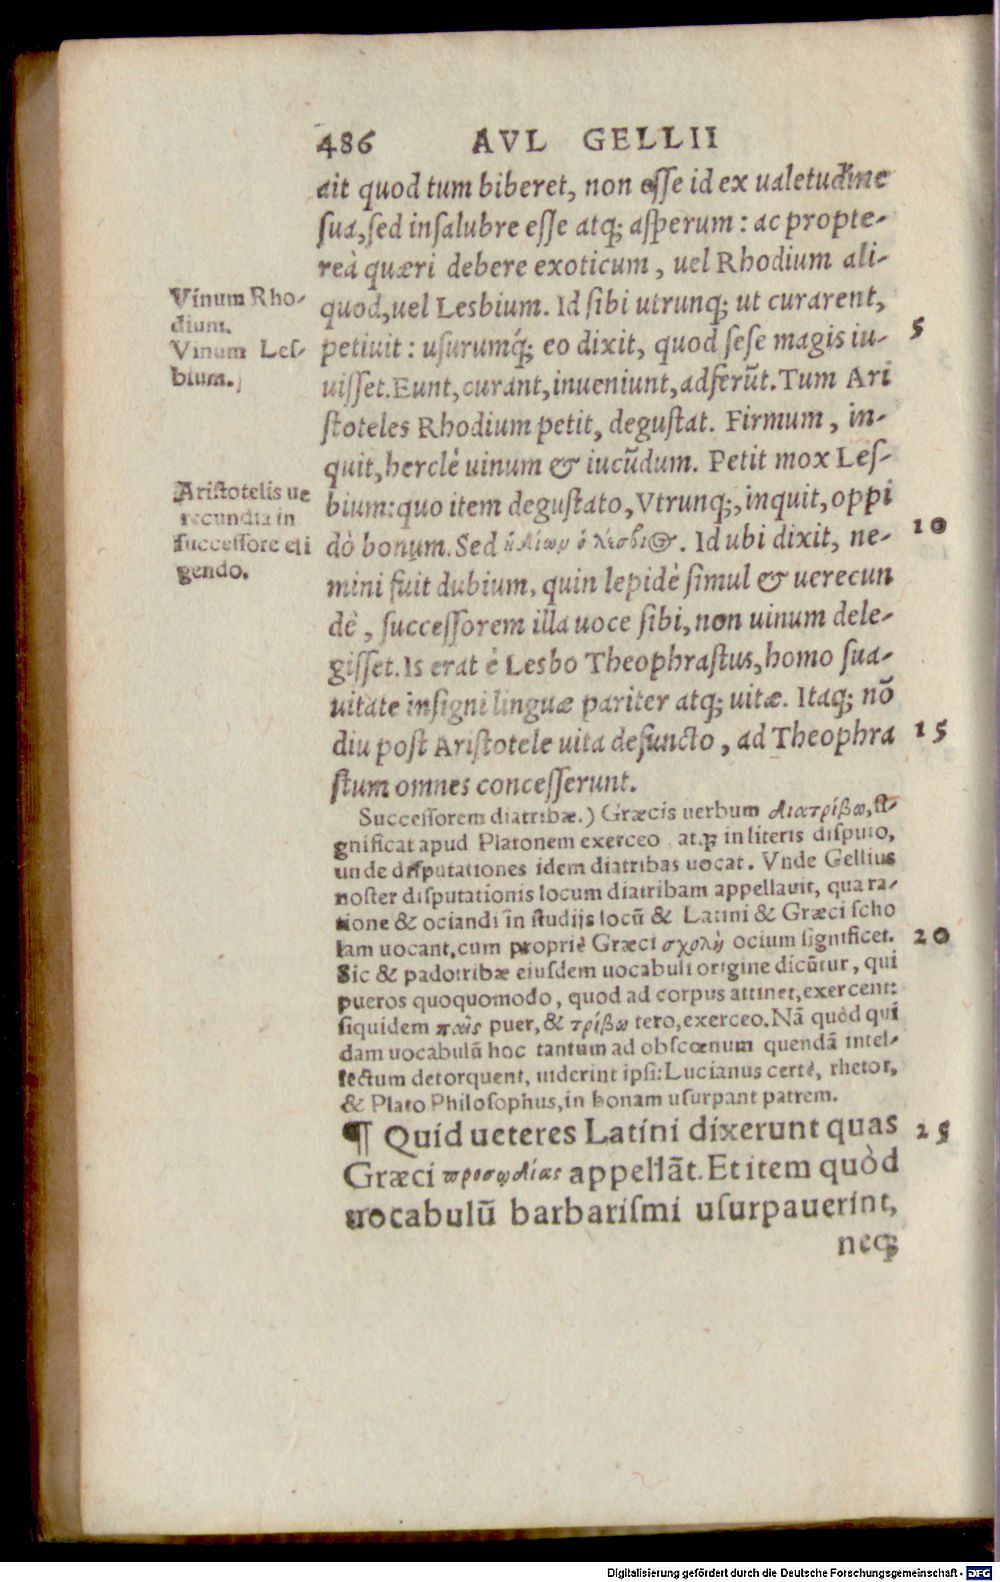 486 AVL GELLII
ait quod tum biberet, non esse id ex ualetudine
sua, sed insalubre esse atq; asperum : ac propte-
reà quæri debere exoticum, uel Rhodium ali-
quod, uel Lesbium. Id sibi utrunq; ut curarent,
petiuit : usurumq́; eo dixit, quod sese magis iu-
uisset. Eunt, curant, inueniunt, adferūt. Tum Ari
stoteles Rhodium petit, degustat. Firmum, in-
quit, herclè uinum & iucūdum. Petit mox Les-
bium: quo item degustato, Vtrunq;, inquit, oppi
dò bonum. Sed ἡδίων ὁ λέσβιος. Id ubi dixit, ne-
mini fuit dubium, quin lepidè simul & uerecun
dè, successorem illa uoce sibi, non uinum dele-
gisset. Is erat è Lesbo Theophrastus, homo sua-
uitate insigni linguæ pariter atq; uitæ. Itaq; nō
diu post Aristotele uita defuncto, ad Theophra
stum omnes concesserunt.
Vinum Rho-
dium.
Vinum Les-
bium.
Aristotelis ue
recundia in
successore eli
gendo.
5
10
15
Successorem diatribæ.) Græcis uerbum διατρίβω, si-
gnificat apud Platonem exerceo atq; in literis disputo,
unde disputationes idem diatribas uocat. Vnde Gellius
noster disputationis locum diatribam appellauit, qua ra-
tione & ociandi in studijs locū & Latini & Græci scho
lam uocant, cum propriè Græci σχολὴ ocium significet.
Sic & padotribæ eiusdem uocabuli origine dicūtur, qui
pueros quoquomodo, quod ad corpus attinet, exercent:
siquidem παῖς puer, & τρίβω tero, exerceo. Nā quòd qui
dam uocabulū hoc tantum ad obscœnum quendā intel-
lectum detorquent, uiderint ipsi: Lucianus certè, rhetor,
& Plato Philosophus, in bonam usurpant patrem.
20
¶ Quid ueteres Latini dixerunt quas
Græci προσῳδίας appellāt. Et item quòd
uocabulū barbarismi usurpauerint,
neq;
25
Digitalisierung gefördert durch die Deutsche Forschungsgemeinschaft - DFG